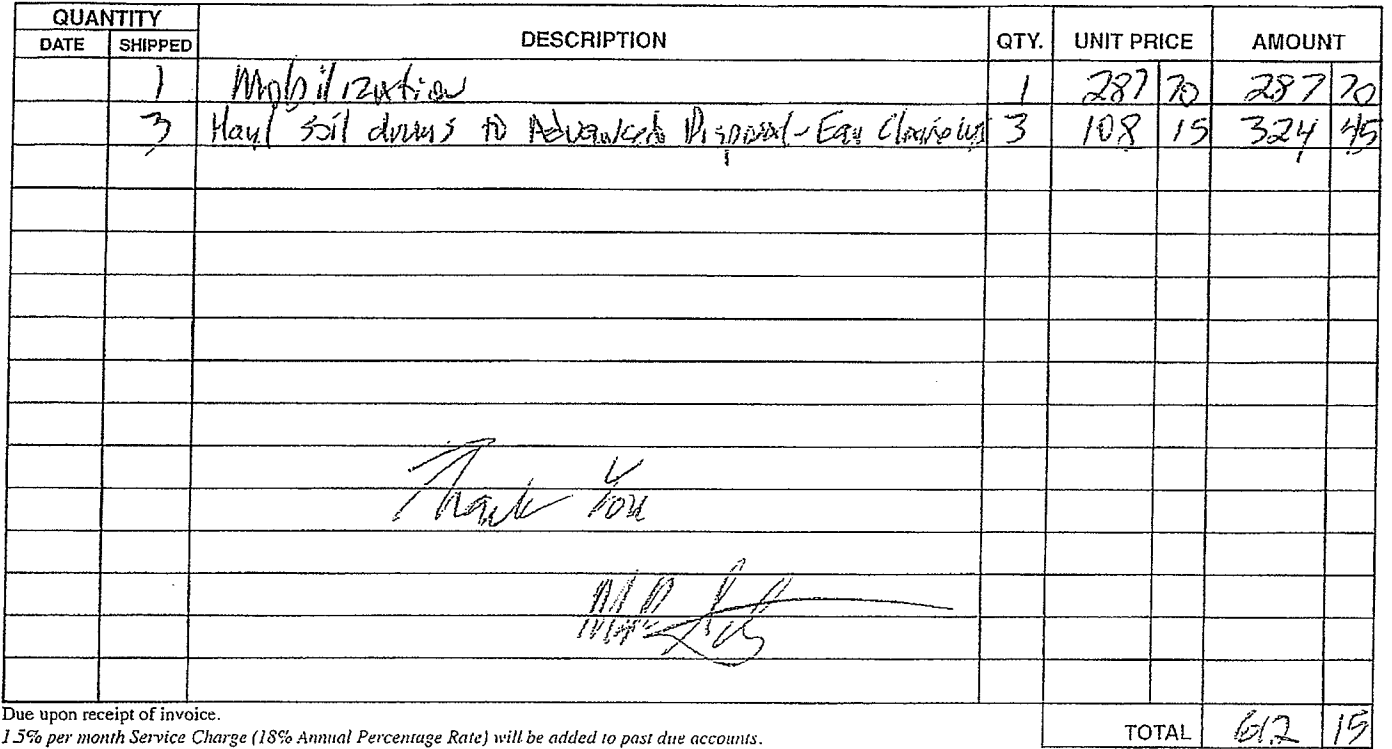 QUANTITY
DATE SHIPPED DESCRIPTION QTY. UNIT PRICE AMOUNT
1 Mobilization 1 287 70 287 70
3 Haul soil drums to Advanced Disposal - Eau Claire 3 108 15 324 45
Thank You
Due upon receipt of invoice.
1.5% per month Service Charge (18% Annual Percentage Rate) will be added to past due accounts.
TOTAL 612 15